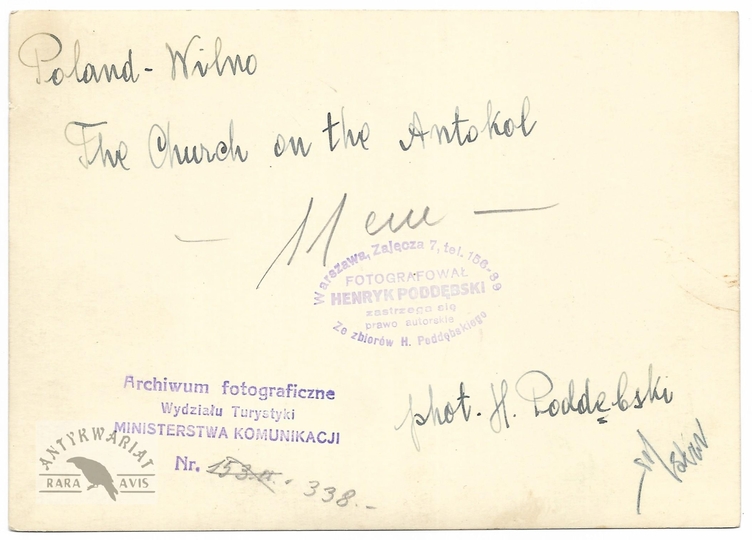 Poland - Wilno
The Church on the Antokol
— 11 cm —
Warszawa, Zajęcza 7, tel. 156-39
FOTOGRAFOWAŁ
HENRYK PODDĘBSKI
zastrzega się
prawo autorskie
Ze zbiorów H. Poddębskiego
phot. H. Poddębski
Archiwum fotograficzne
Wydziału Turystyki
MINISTERSTWA KOMUNIKACJI
Nr. 338.-
ANTYKWARIAT
RARA AVIS